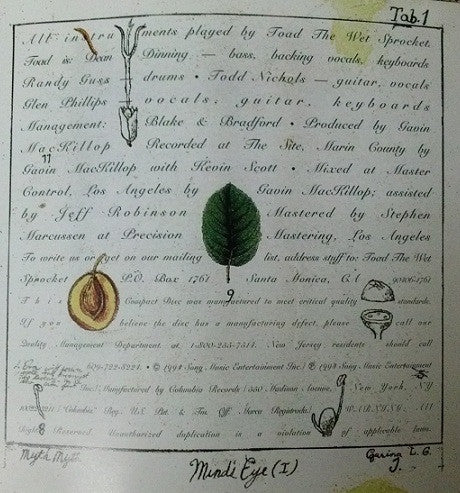 Tab. 1
All instruments played by Toad The Wet Sprocket.
Toad is: Dean Dinning — bass, backing vocals, keyboards
Randy Guss — drums • Todd Nichols — guitar, vocals
Glen Phillips vocals, guitar, keyboards
Management: Blake & Bradford • Produced by Gavin
MacKillop Recorded at The Site, Marin County by
Gavin MacKillop with Kevin Scott • Mixed at Master
Control, Los Angeles by Gavin MacKillop; assisted
by Jeff Robinson Mastered by Stephen
Marcussen at Precision Mastering, Los Angeles
To write us or get on our mailing list, address stuff to: Toad The Wet
Sprocket P.O. Box 1761 Santa Monica, CA 90406-1761
9
This Compact Disc was manufactured to meet critical quality standards.
If you believe the disc has a manufacturing defect, please call our
Quality Management Department at 1-800-255-7514. New Jersey residents should call
609-722-8224. • © 1994 Sony Music Entertainment Inc./ ℗ 1994 Sony Music Entertainment
Inc./ Manufactured by Columbia Records / 550 Madison Avenue, New York, NY
"Columbia" Reg. U.S. Pat. & Tm. Off. Marca Registrada. WARNING: All
Rights Reserved. Unauthorized duplication is a violation of applicable laws.
8
Myth Myth
Mind's Eye (I)